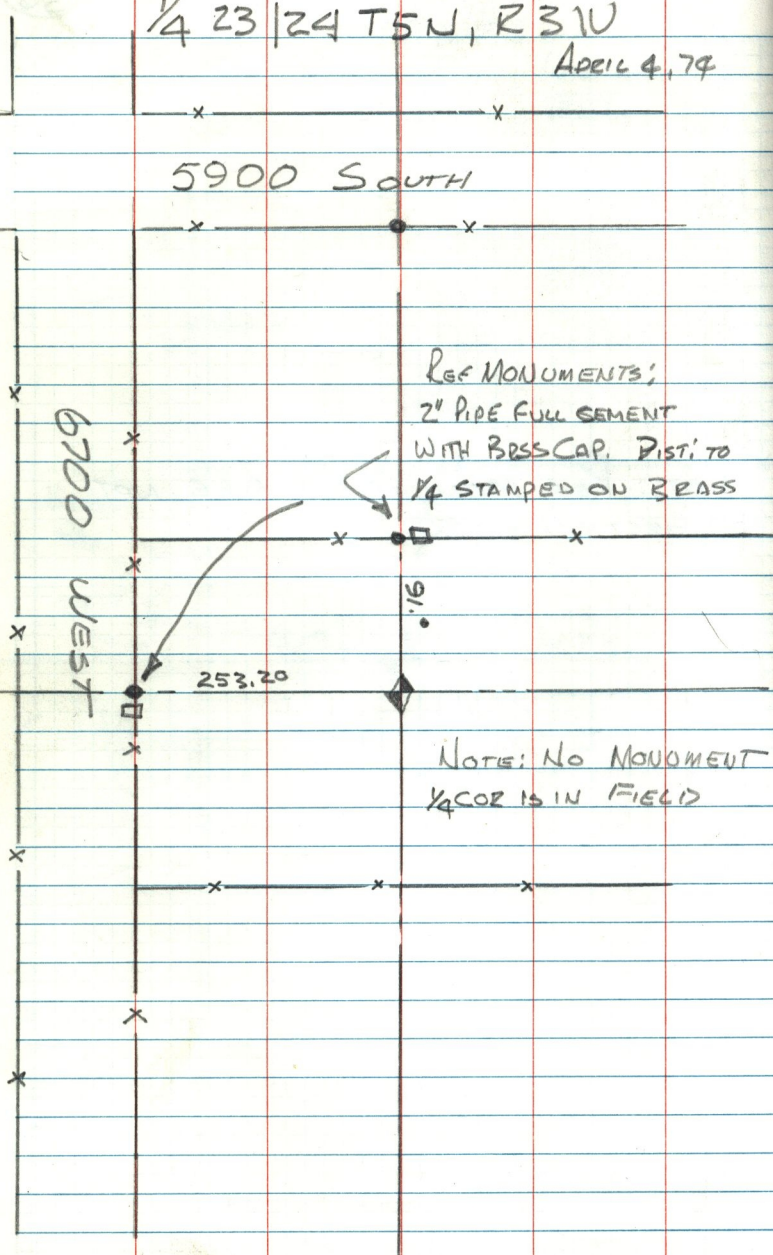 1/4 23|24 T5N, R3W
APRIL 4, 74
5900 SOUTH
REF MONUMENTS:
2" PIPE FULL CEMENT
WITH BRSS CAP. DIST. TO
1/4 STAMPED ON BRASS
6700 WEST
91.
253.20
NOTE: NO MONUMENT
1/4 COR IS IN FIELD